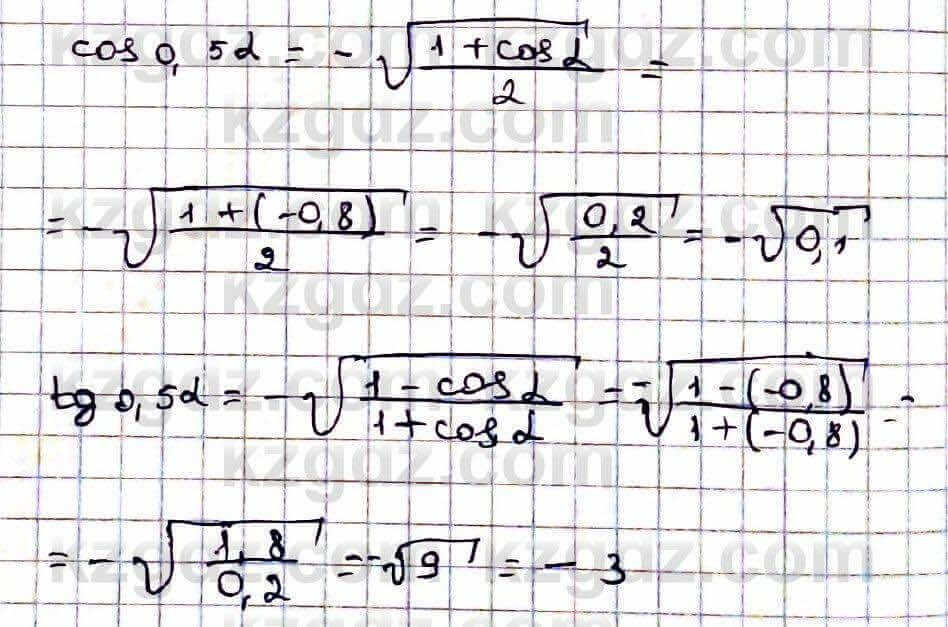 cos 0,5α = -√((1 + cos α)/2) =
= -√((1 + (-0,8))/2) = -√(0,2/2) = -√0,1
tg 0,5α = -√((1 - cos α)/(1 + cos α)) = -√((1 - (-0,8))/(1 + (-0,8))) =
= -√(1,8/0,2) = -√9 = -3
kzgdz.com